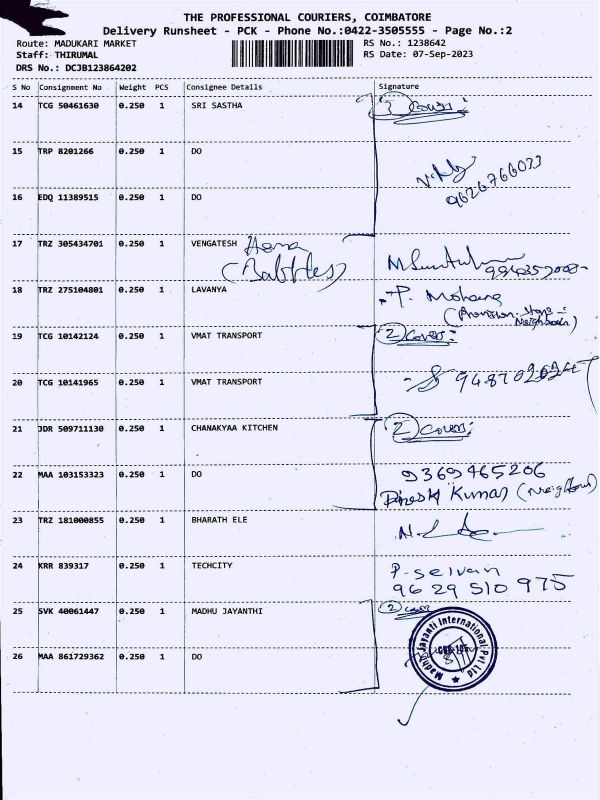 THE PROFESSIONAL COURIERS, COIMBATORE
Delivery Runsheet - PCK - Phone No.:0422-3505555 - Page No.:2
Route: MADUKARI MARKET RS No.: 1238642
Staff: THIRUMAL RS Date: 07-Sep-2023
DRS No.: DCJB123864202
S No Consignment No Weight PCS Consignee Details Signature
14 TCG 50461630 0.250 1 SRI SASTHA 3 Cover:
15 TRP 8201266 0.250 1 DO
9626766033
16 EDQ 11389515 0.250 1 DO
17 TRZ 305434701 0.250 1 VENGATESH
18 TRZ 275104801 0.250 1 LAVANYA P. Mohana
(Provision Store - Neighbour)
19 TCG 10142124 0.250 1 VMAT TRANSPORT 2 Cover:
20 TCG 10141965 0.250 1 VMAT TRANSPORT 9487020247
21 JDR 509711130 0.250 1 CHANAKYAA KITCHEN 2 Cover:
22 MAA 103153323 0.250 1 DO 9369465206
Dinesh Kumar (neighbour)
23 TRZ 181000855 0.250 1 BHARATH ELE
24 KRR 839317 0.250 1 TECHCITY P-Selvan
9629510975
25 SVK 40061447 0.250 1 MADHU JAYANTHI 2 cover
Madhu Jayanti International Pvt Ltd
26 MAA 861729362 0.250 1 DO